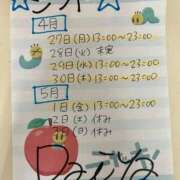 ☆シフト☆
4月
27日(月)13:00~23:00
28日(火)未定
29日(水)13:00~23:00
30日(木)13:00~23:00
5月
1日(金)13:00~23:00
2日(土)休み
3日(日)休み